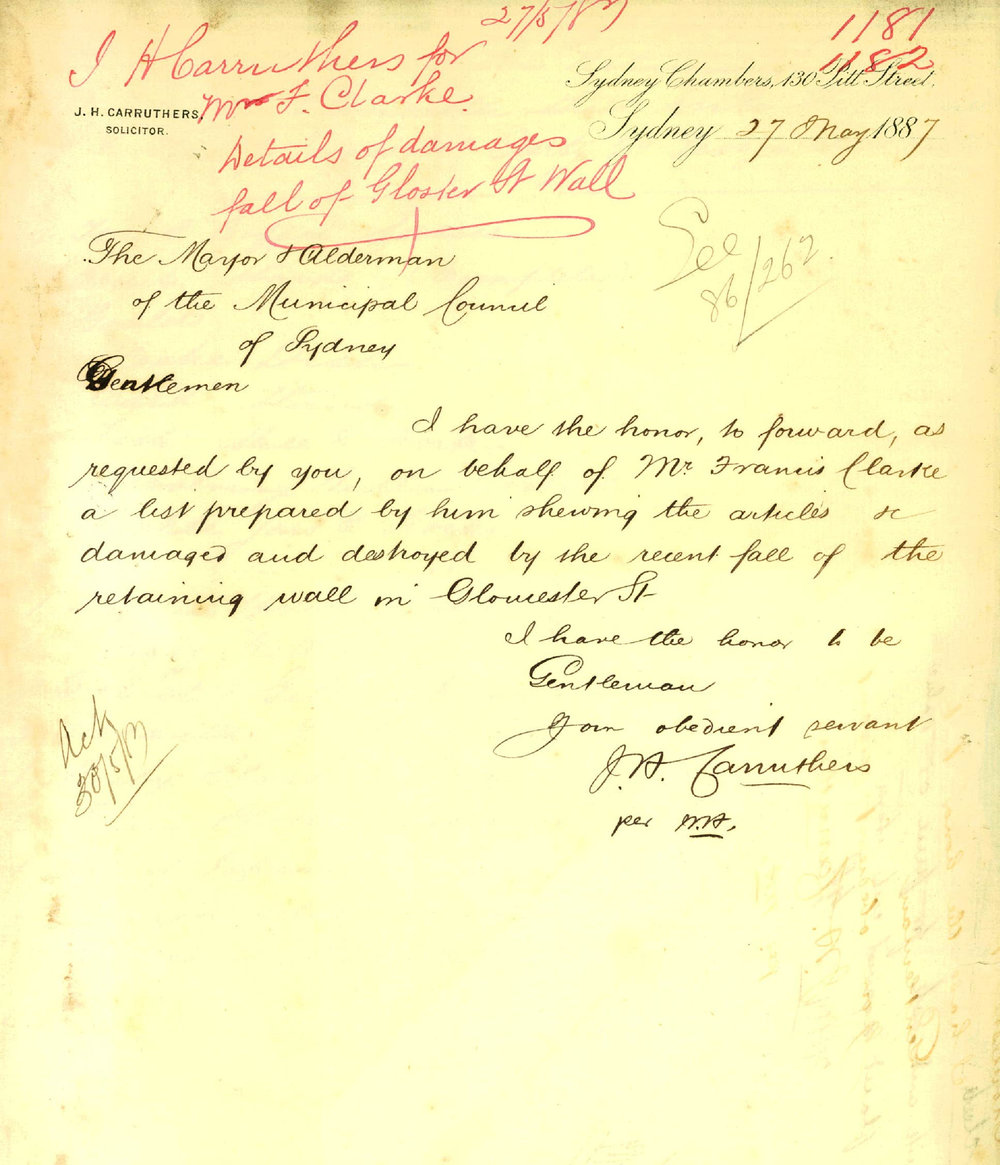 27/5/87
1181
1182
J H Carruthers for
Mr F. Clarke.
Details of damages
fall of Gloster St Wall
J. H. CARRUTHERS,
SOLICITOR.
Sydney Chambers, 130 Pitt Street.
Sydney 27 May 1887
See
86/262
The Mayor & Alderman
of the Municipal Council
of Sydney
Gentlemen
I have the honor, to forward, as
requested by you, on behalf of Mr. Francis Clarke
a list prepared by him shewing the articles &c
damaged and destroyed by the recent fall of the
retaining wall in Gloucester St
I have the honor to be
Gentleman
Your obedient servant
J. H. Carruthers
per
Ack
30/5/87